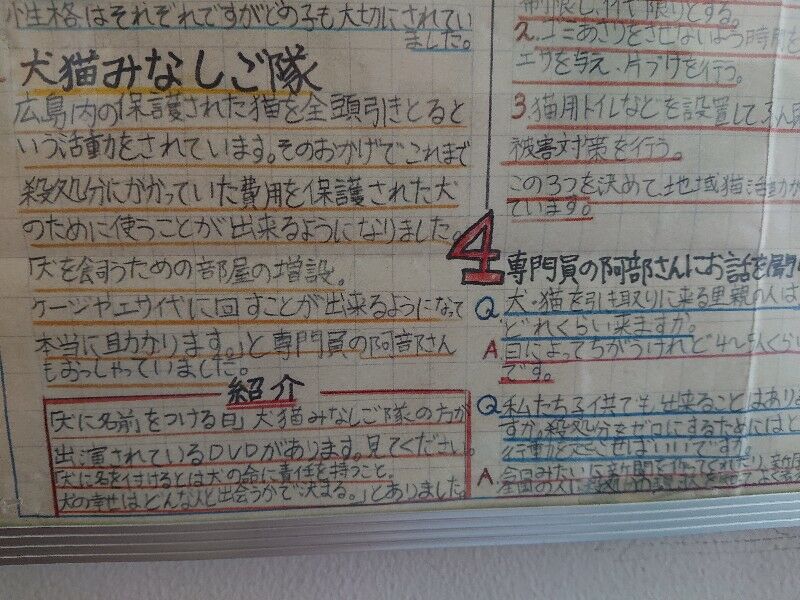 性格はそれぞれですがどの子も大切にされてい
ました。
犬猫みなしご隊
広島内の保護された猫を全頭引きとると
いう活動をされています。そのおかげでこれまで
殺処分にかかっていた費用を保護された犬
のために使うことが出来るようになりました。
「犬を飼うための部屋の増設。
ケージやエサ代に回すことが出来るようになって
本当に助かります。」と専門員の阿部さん
もおっしゃっていました。
紹介
「犬に名前をつける日」犬猫みなしご隊の方が
出演されているDVDがあります。見てください。
「犬に名を付けるとは犬の命に責任を持つこと。
犬の幸せはどんな人と出会うかで決まる。」とありました。
2.ゴミあさりをさせないよう時間を
エサを与え、片づけを行う。
3.猫用トイレなどを設置して、ふん
被害対策を行う。
この3つを決めて地域猫活動
ています。
4 専門員の阿部さんにお話を聞
Q 犬・猫を引き取りに来る里親の人は
どれくらい来ますか。
A 日によってちがうけれど4〜5人くらい
です。
Q 私たち子供でも出来ることはあり
すか。殺処分をゼロにするためにはど
A 今日みたいに新聞を作ってくれたり